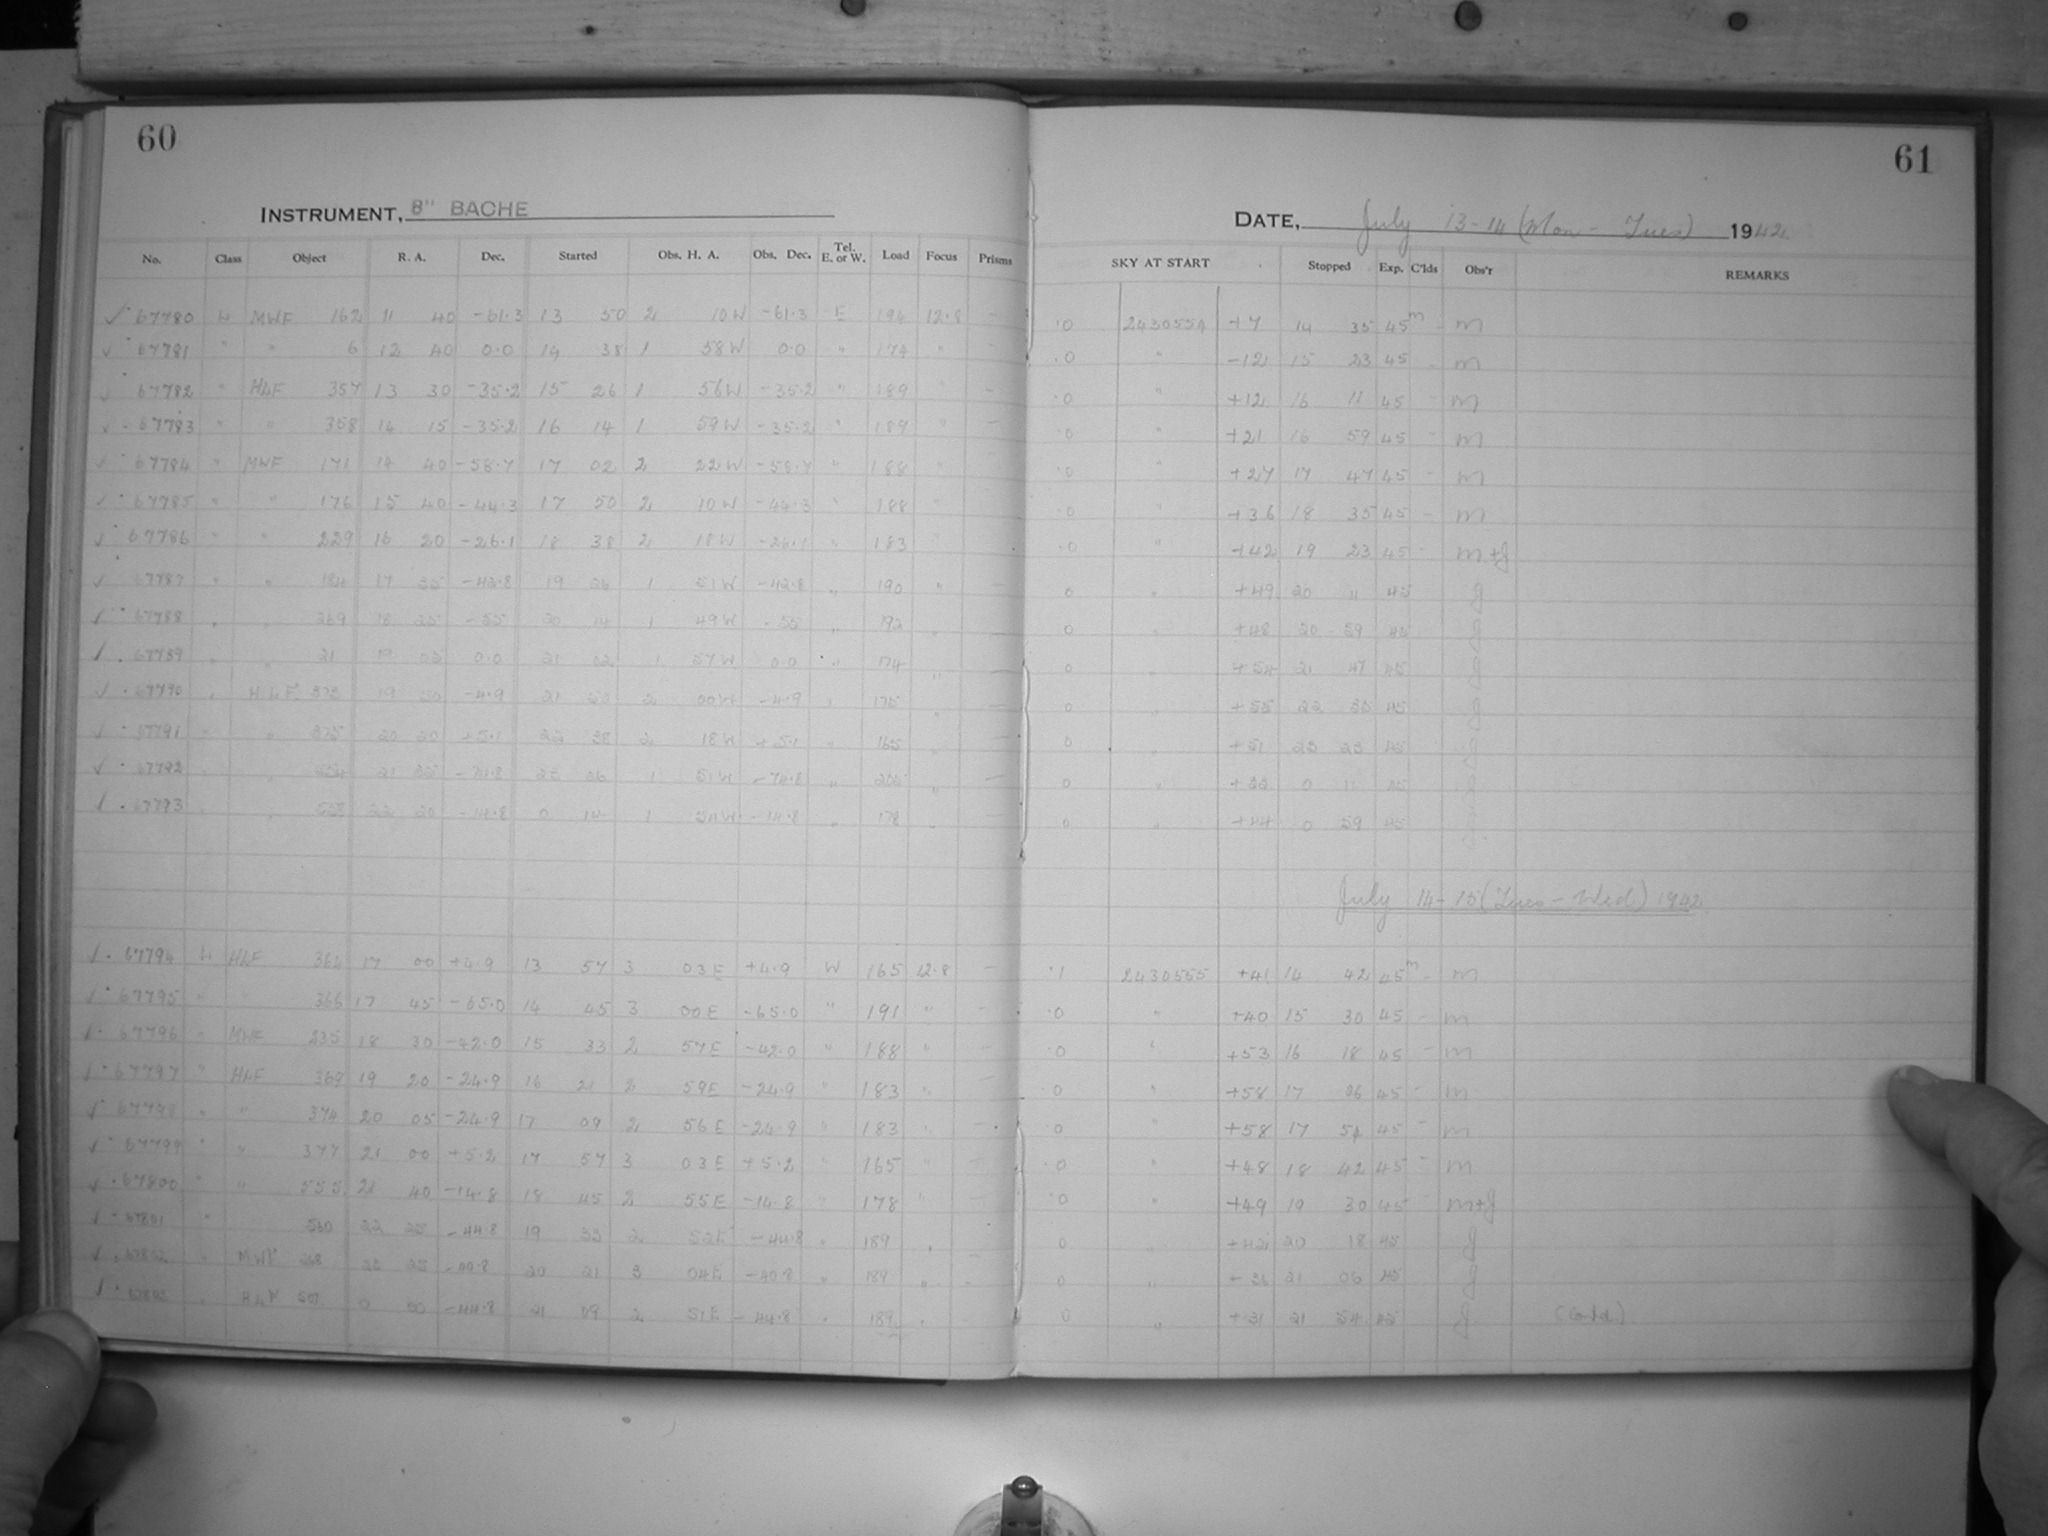 60
INSTRUMENT, 8" BACHE
No. Class Object R. A. Dec. Started Obs. H. A. Obs. Dec. Tel. E. or W. Load Focus Prisms
✓ 67780 L MWF 162 11 40 -61.3 13 50 2 10W -61.3 E 194 12.8 -
✓ 67781 " " 6 12 40 0.0 14 38 1 58W 0.0 " 174 " -
✓ 67782 " HLF 357 13 30 -35.2 15 26 1 56W -35.2 " 189 " -
✓ 67783 " " 358 14 15 -35.2 16 14 1 59W -35.2 " 189 " -
✓ 67784 " MWF 171 14 40 -58.7 17 02 2 22W -58.7 " 188 " -
✓ 67785 " " 176 15 40 -44.3 17 50 2 10W -44.3 " 188 " -
✓ 67786 " " 229 16 20 -26.1 18 38 2 18W -26.1 " 183 " -
✓ 67787 " " 17 35 -42.8 19 26 1 51W -42.8 " 190 " -
✓ 67788 " " 269 18 25 -55 20 14 1 49W -55 " 192 " -
✓ 67789 " " 21 19 05 0.0 21 02 1 57W 0.0 " 174 " -
✓ 67790 " HLF 373 19 50 -4.9 21 50 2 00W -4.9 " 175 " -
✓ 67791 " " 375 20 20 +5.1 22 38 2 18W +5.1 " 165 " -
✓ 67792 " " 21 35 -74.8 23 26 1 51W -74.8 " 205 " -
✓ 67793 " " 558 22 20 -14.8 0 14 1 54W -14.8 " 178 " -
✓ 67794 L HLF 364 17 00 +4.9 13 57 3 03E +4.9 W 165 12.8 -
✓ 67795 " " 366 17 45 -65.0 14 45 3 00E -65.0 " 191 " -
✓ 67796 " MWF 235 18 30 -42.0 15 33 2 57E -42.0 " 188 " -
✓ 67797 " HLF 369 19 20 -24.9 16 21 2 59E -24.9 " 183 " -
✓ 67798 " " 374 20 05 -24.9 17 09 2 56E -24.9 " 183 " -
✓ 67799 " " 377 21 00 +5.2 17 57 3 03E +5.2 " 165 " -
✓ 67800 " " 555 21 40 -14.8 18 45 2 55E -14.8 " 178 " -
✓ 67801 " 560 22 25 -44.8 19 33 2 52E -44.8 " 189 "
✓ 67802 " MWF 268 23 25 -40.8 20 21 3 04E -40.8 " 189 " -
✓ 67803 " HLF 501 0 00 -44.8 21 09 2 51E -44.8 " 189 " -
61
DATE, July 13-14 (Mon - Tues) 1942
SKY AT START Stopped Exp. C'lds Obs'r REMARKS
.0 2430554 +7 14 35 45m - m
.0 " -12 15 23 45 m
.0 " +12 16 11 45 - m
.0 " +21 16 59 45 - m
.0 " +27 17 47 45 - m
.0 " +36 18 35 45 - m
.0 " +42 19 23 45 - m+J
0 " +49 20 11 45 J
0 " +48 20 59 45 J
0 " +54 21 47 45 J
0 " +55 22 35 45 J
0 " +51 23 23 45 J
0 " +22 0 11 45 J
0 " +44 0 59 45 J
July 14-15 (Tues - Wed) 1942
.1 2430555 +41 14 42 45m - m
.0 " +40 15 30 45 - m
.0 " +53 16 18 45 - m
.0 " +58 17 06 45 - m
.0 " +58 17 54 45 - m
.0 " +48 18 42 45 - m
.0 " +49 19 30 45 - m+J
0 " +42 20 18 45 J
0 " +36 21 06 45 J
0 " +31 21 54 45 J (Contd)